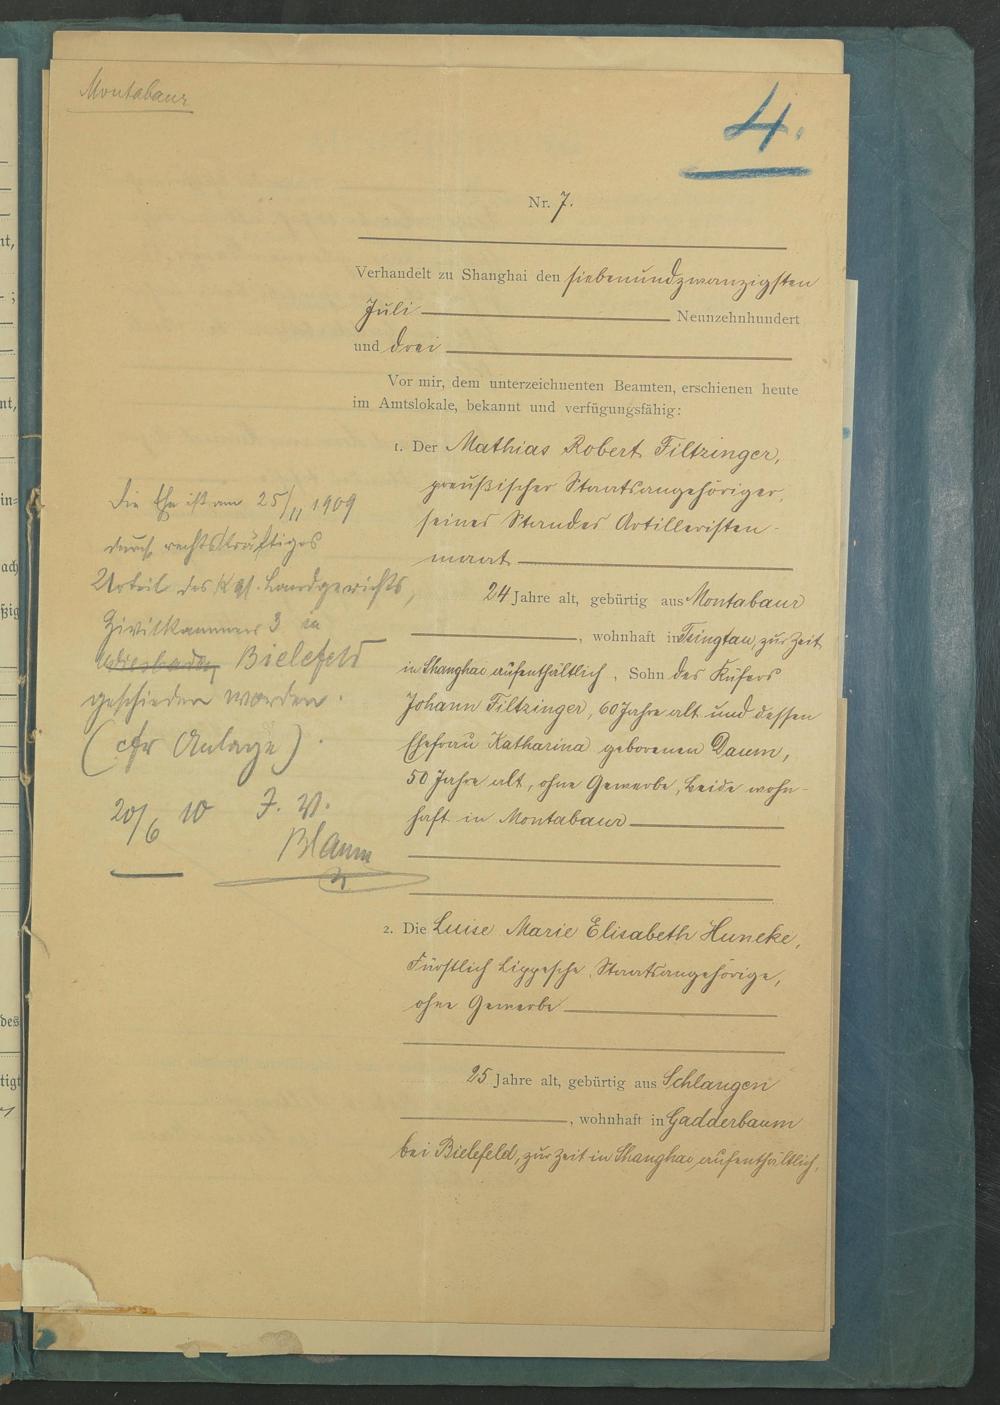 Montabaur
4.
Nr. 7.
Verhandelt zu Shanghai den siebenundzwanzigsten
Juli Neunzehnhundert
und drei
Vor mir, dem unterzeichneten Beamten, erschienen heute
im Amtslokale, bekannt und verfügungsfähig:
1. Der Mathias Robert Filtzinger,
preußischer Staatsangehöriger,
seines Standes Artilleristen-
maat
24 Jahre alt, gebürtig aus Montabaur
, wohnhaft in Tsingtau, zur Zeit
in Shanghai aufenthältlich, Sohn des Küfers
Johann Filtzinger, 60 Jahre alt und dessen
Ehefrau Katharina geborenen Daum,
50 Jahre alt, ohne Gewerbe, beide wohn-
haft in Montabaur
2. Die Luise Marie Elisabeth Huneke,
Fürstlich Lippesche Staatsangehörige,
ohne Gewerbe
25 Jahre alt, gebürtig aus Schlangen
, wohnhaft in Gadderbaum
bei Bielefeld, zur Zeit in Shanghai aufenthältlich,
Die Ehe ist am 25/11 1909
durch rechtskräftiges
Urteil des Kgl. Landgerichts,
Zivilkammer 3 in
Wiesbaden Bielefeld
geschieden worden.
(cfr Anlage).
20/6 10 J. V.
Blaum
nt,
- ;
nt,
in-
ach
ßig
des
tigt